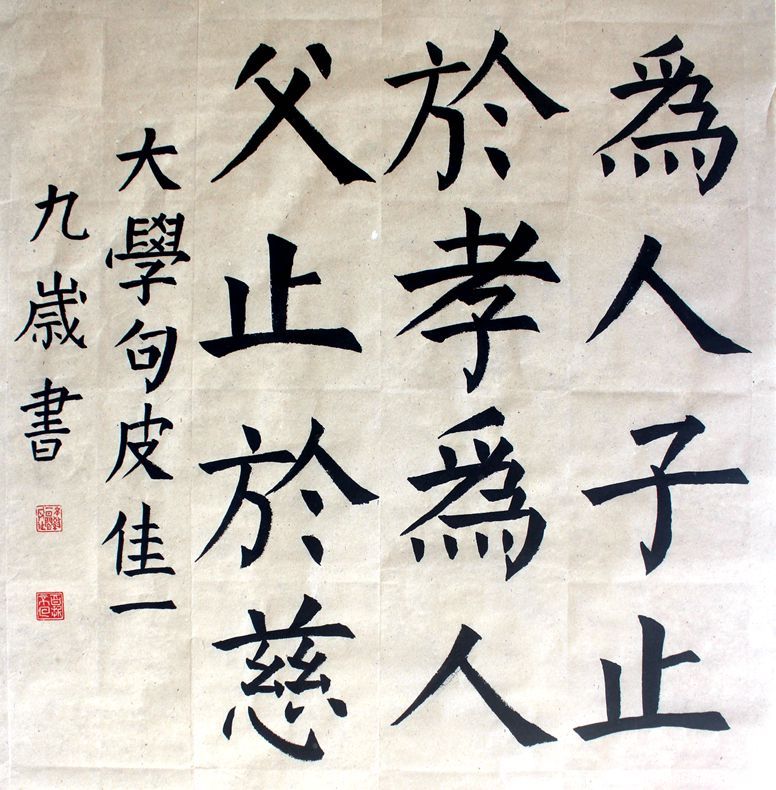 為人子止
於孝為人
父止於慈
大學句皮佳一
九歲書